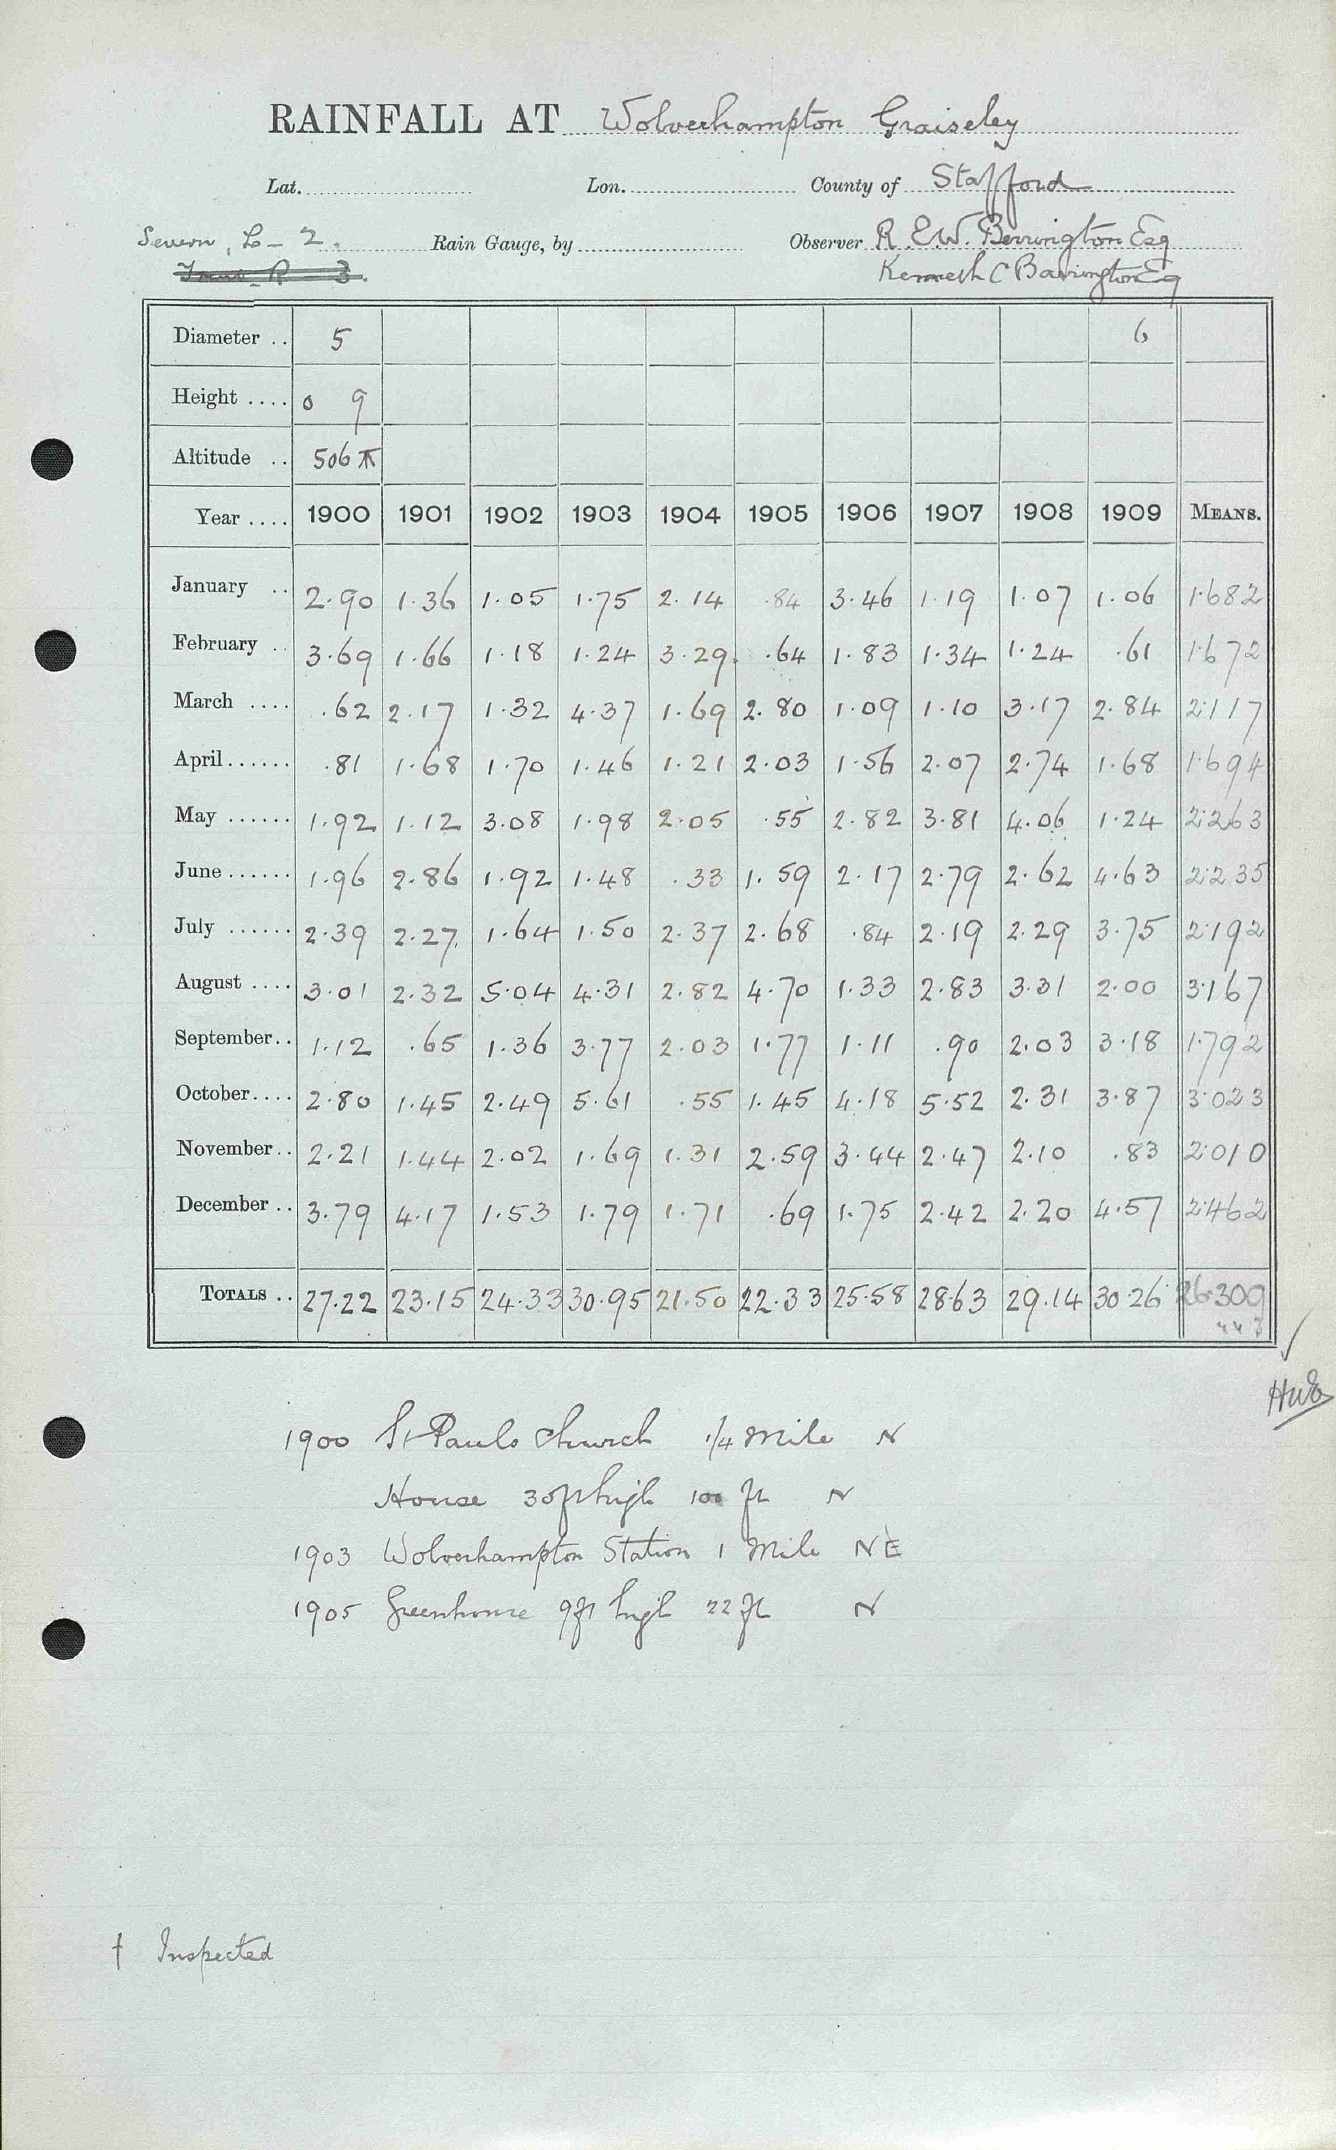 RAINFALL AT Wolverhampton Graiseley
Lat. Lon. County of Stafford
Severn, L - 2. Rain Gauge, by Observer R. E W. Berrington Esq
R 3. Kenneth C Barrington Esq
Diameter .. 5 6
Height .... 0 9
Altitude .. 506
Year .... 1900 1901 1902 1903 1904 1905 1906 1907 1908 1909 MEANS.
January .. 2.90 1.36 1.05 1.75 2.14 .84 3.46 1.19 1.07 1.06 1.682
February .. 3.69 1.66 1.18 1.24 3.29 .64 1.83 1.34 1.24 .61 1.672
March .... .62 2.17 1.32 4.37 1.69 2.80 1.09 1.10 3.17 2.84 2.117
April ...... .81 1.68 1.70 1.46 1.21 2.03 1.56 2.07 2.74 1.68 1.694
May ...... 1.92 1.12 3.08 1.98 2.05 .55 2.82 3.81 4.06 1.24 2.263
June ...... 1.96 2.86 1.92 1.48 .33 1.59 2.17 2.79 2.62 4.63 2.235
July ...... 2.39 2.27 1.64 1.50 2.37 2.68 .84 2.19 2.29 3.75 2.192
August .... 3.01 2.32 5.04 4.31 2.82 4.70 1.33 2.83 3.31 2.00 3.167
September .. 1.12 .65 1.36 3.77 2.03 1.77 1.11 .90 2.03 3.18 1.792
October .... 2.80 1.45 2.49 5.61 .55 1.45 4.18 5.52 2.31 3.87 3.023
November .. 2.21 1.44 2.02 1.69 1.31 2.59 3.44 2.47 2.10 .83 2.010
December .. 3.79 4.17 1.53 1.79 1.71 .69 1.75 2.42 2.20 4.57 2.462
TOTALS .. 27.22 23.15 24.33 30.95 21.50 22.33 25.58 28.63 29.14 30.26 26.309
1900 St Pauls Church 1/4 Mile N
House 30ft high 100 ft N
1903 Wolverhampton Station 1 Mile NE
1905 Greenhouse 9ft high 22 ft N
† Inspected